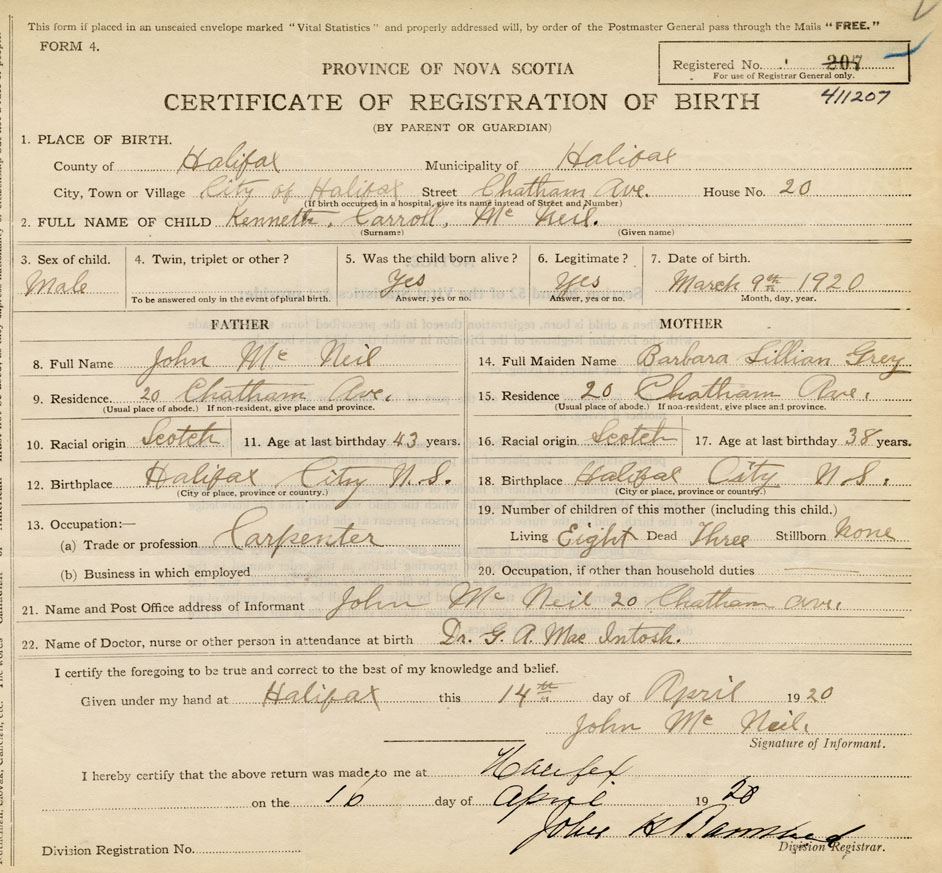 This form if placed in an unsealed envelope marked "Vital Statistics" and properly addressed will, by order of the Postmaster General pass through the Mails "FREE."
FORM 4.
Registered No. 207
For use of Registrar General only.
411207
PROVINCE OF NOVA SCOTIA
CERTIFICATE OF REGISTRATION OF BIRTH
(BY PARENT OR GUARDIAN)
1. PLACE OF BIRTH.
County of Halifax Municipality of Halifax
City, Town or Village City of Halifax Street Chatham Ave. House No. 20
(If birth occurred in a hospital, give its name instead of Street and Number)
2. FULL NAME OF CHILD Kenneth, Carroll, Mc Neil.
(Surname) (Given name)
3. Sex of child. 4. Twin, triplet or other? 5. Was the child born alive? 6. Legitimate? 7. Date of birth.
Male Yes Yes March 9th 1920
To be answered only in the event of plural birth. Answer, yes or no. Answer, yes or no. Month, day, year.
FATHER MOTHER
8. Full Name John Mc Neil 14. Full Maiden Name Barbara Lillian Grey
9. Residence. 20 Chatham Ave. 15. Residence 20 Chatham Ave.
(Usual place of abode.) If non-resident, give place and province. (Usual place of abode.) If non-resident, give place and province.
10. Racial origin Scotch 11. Age at last birthday 43 years. 16. Racial origin Scotch 17. Age at last birthday 38 years.
12. Birthplace Halifax City N.S. 18. Birthplace Halifax City N.S.
(City or place, province or country.) (City or place, province or country.)
13. Occupation:— 19. Number of children of this mother (including this child.)
(a) Trade or profession Carpenter Living Eight Dead Three Stillborn None
(b) Business in which employed 20. Occupation, if other than household duties
21. Name and Post Office address of Informant John Mc Neil 20 Chatham ave.
22. Name of Doctor, nurse or other person in attendance at birth Dr. G. A. Mac Intosh.
I certify the foregoing to be true and correct to the best of my knowledge and belief.
Given under my hand at Halifax this 14th day of April 1920
John Mc Neil.
Signature of Informant.
I hereby certify that the above return was made to me at Halifax
on the 16 day of April 1920
John
Division Registration No. Division Registrar.